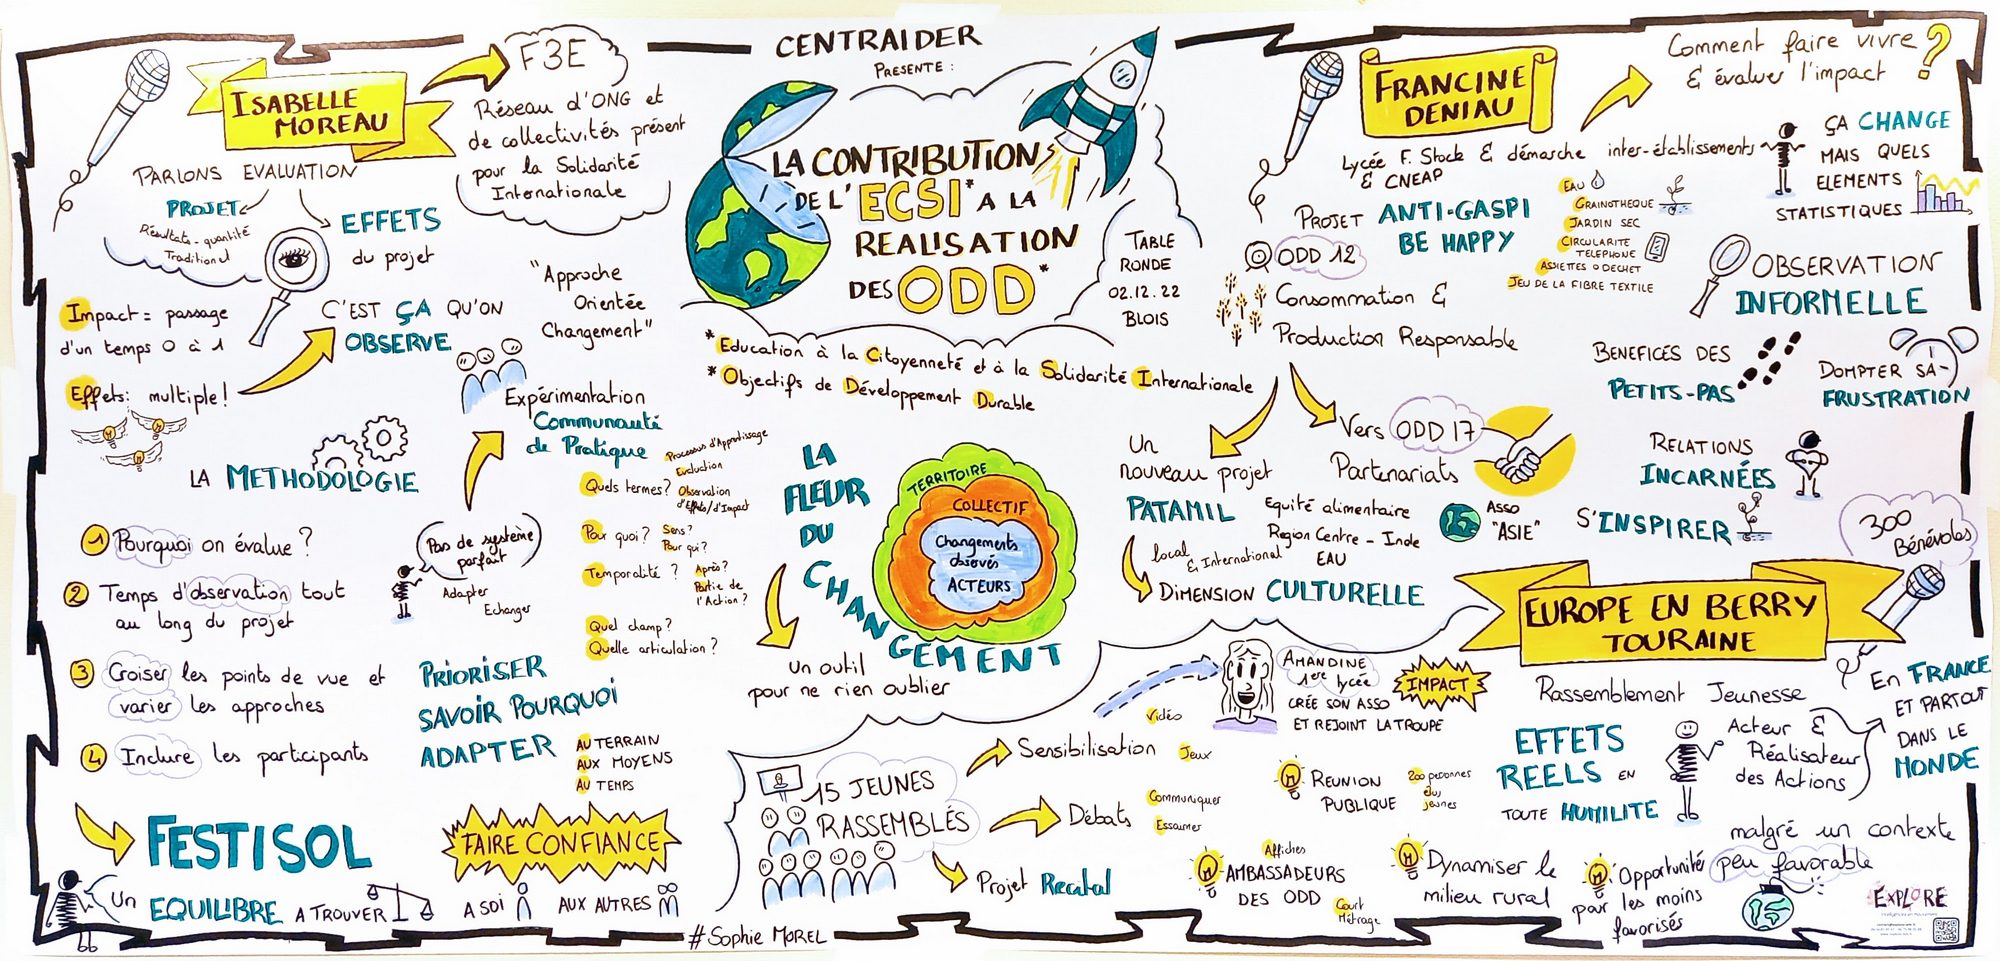 CENTRAIDER
PRESENTE :
LA CONTRIBUTION
DE L'ECSI* A LA
REALISATION
DES ODD*
TABLE
RONDE
02.12.22
BLOIS
* Education à la Citoyenneté et à la Solidarité Internationale
* Objectifs de Développement Durable
ISABELLE
MOREAU
F3E
Réseau d'ONG et
de collectivités présent
pour la Solidarité
Internationale
PARLONS EVALUATION
PROJET
Résultats - quantité
Traditionel
EFFETS
du projet
Impact = passage
d'un temps 0 à 1
Effets: multiple!
C'EST ÇA QU'ON
OBSERVE
"Approche
Orientée
Changement"
Expérimentation
Communauté
de Pratique
LA METHODOLOGIE
1 Pourquoi on évalue ?
2 Temps d'observation tout
au long du projet
3 Croiser les points de vue et
varier les approches
4 Inclure les participants
Pas de système
parfait
Adapter
Echanger
Processus d'Apprentissage
Evaluation
Quels termes?
Observation
d'Effets/d'Impact
Pour quoi?
Sens?
Pour qui?
Temporalité ?
Après?
Partie de
l'Action?
Quel champ?
Quelle articulation?
PRIORISER
SAVOIR POURQUOI
ADAPTER
AU TERRAIN
AUX MOYENS
AU TEMPS
FESTISOL
Un EQUILIBRE A TROUVER
FAIRE CONFIANCE
A SOI
AUX AUTRES
#Sophie MOREL
LA
FLEUR
DU
CHANGEMENT
TERRITOIRE
COLLECTIF
Changements
observés
ACTEURS
un outil
pour ne rien oublier
FRANCINE
DENIAU
Comment faire vivre
& évaluer l'impact ?
Lycée F. Stock & démarche inter-établissements
& CNEAP
PROJET ANTI-GASPI
BE HAPPY
EAU
GRAINOTHEQUE
JARDIN SEC
CIRCULARITE
TELEPHONE
ASSIETTES 0 DECHET
JEU DE LA FIBRE TEXTILE
ODD 12
Consommation &
Production Responsable
ÇA CHANGE
MAIS QUELS
ELEMENTS
STATISTIQUES
OBSERVATION
INFORMELLE
BENEFICES DES
PETITS-PAS
DOMPTER SA
FRUSTRATION
RELATIONS
INCARNÉES
S'INSPIRER
Vers ODD 17
Partenariats
Un
nouveau projet
PATAMIL
Equité alimentaire
Region Centre - Inde
EAU
ASSO
"ASIE"
local
& International
DIMENSION CULTURELLE
300
Bénévoles
EUROPE EN BERRY
TOURAINE
Rassemblement Jeunesse
En FRANCE
ET PARTOUT
DANS LE
MONDE
EFFETS
REELS EN
TOUTE HUMILITE
Acteur &
Réalisateur
des Actions
malgré un contexte
peu favorable
AMANDINE
1ere lycée
CRÉE SON ASSO
ET REJOINT LA TROUPE
IMPACT
15 JEUNES
RASSEMBLÉS
Sensibilisation
Vidéo
Jeux
Débats
Communiquer
Essaimer
Projet Recital
REUNION
PUBLIQUE
200 personnes
dus
jeunes
Affiches
AMBASSADEURS
DES ODD
Court
Métrage
Dynamiser le
milieu rural
Opportunités
pour les moins
favorisés
EXPLORE